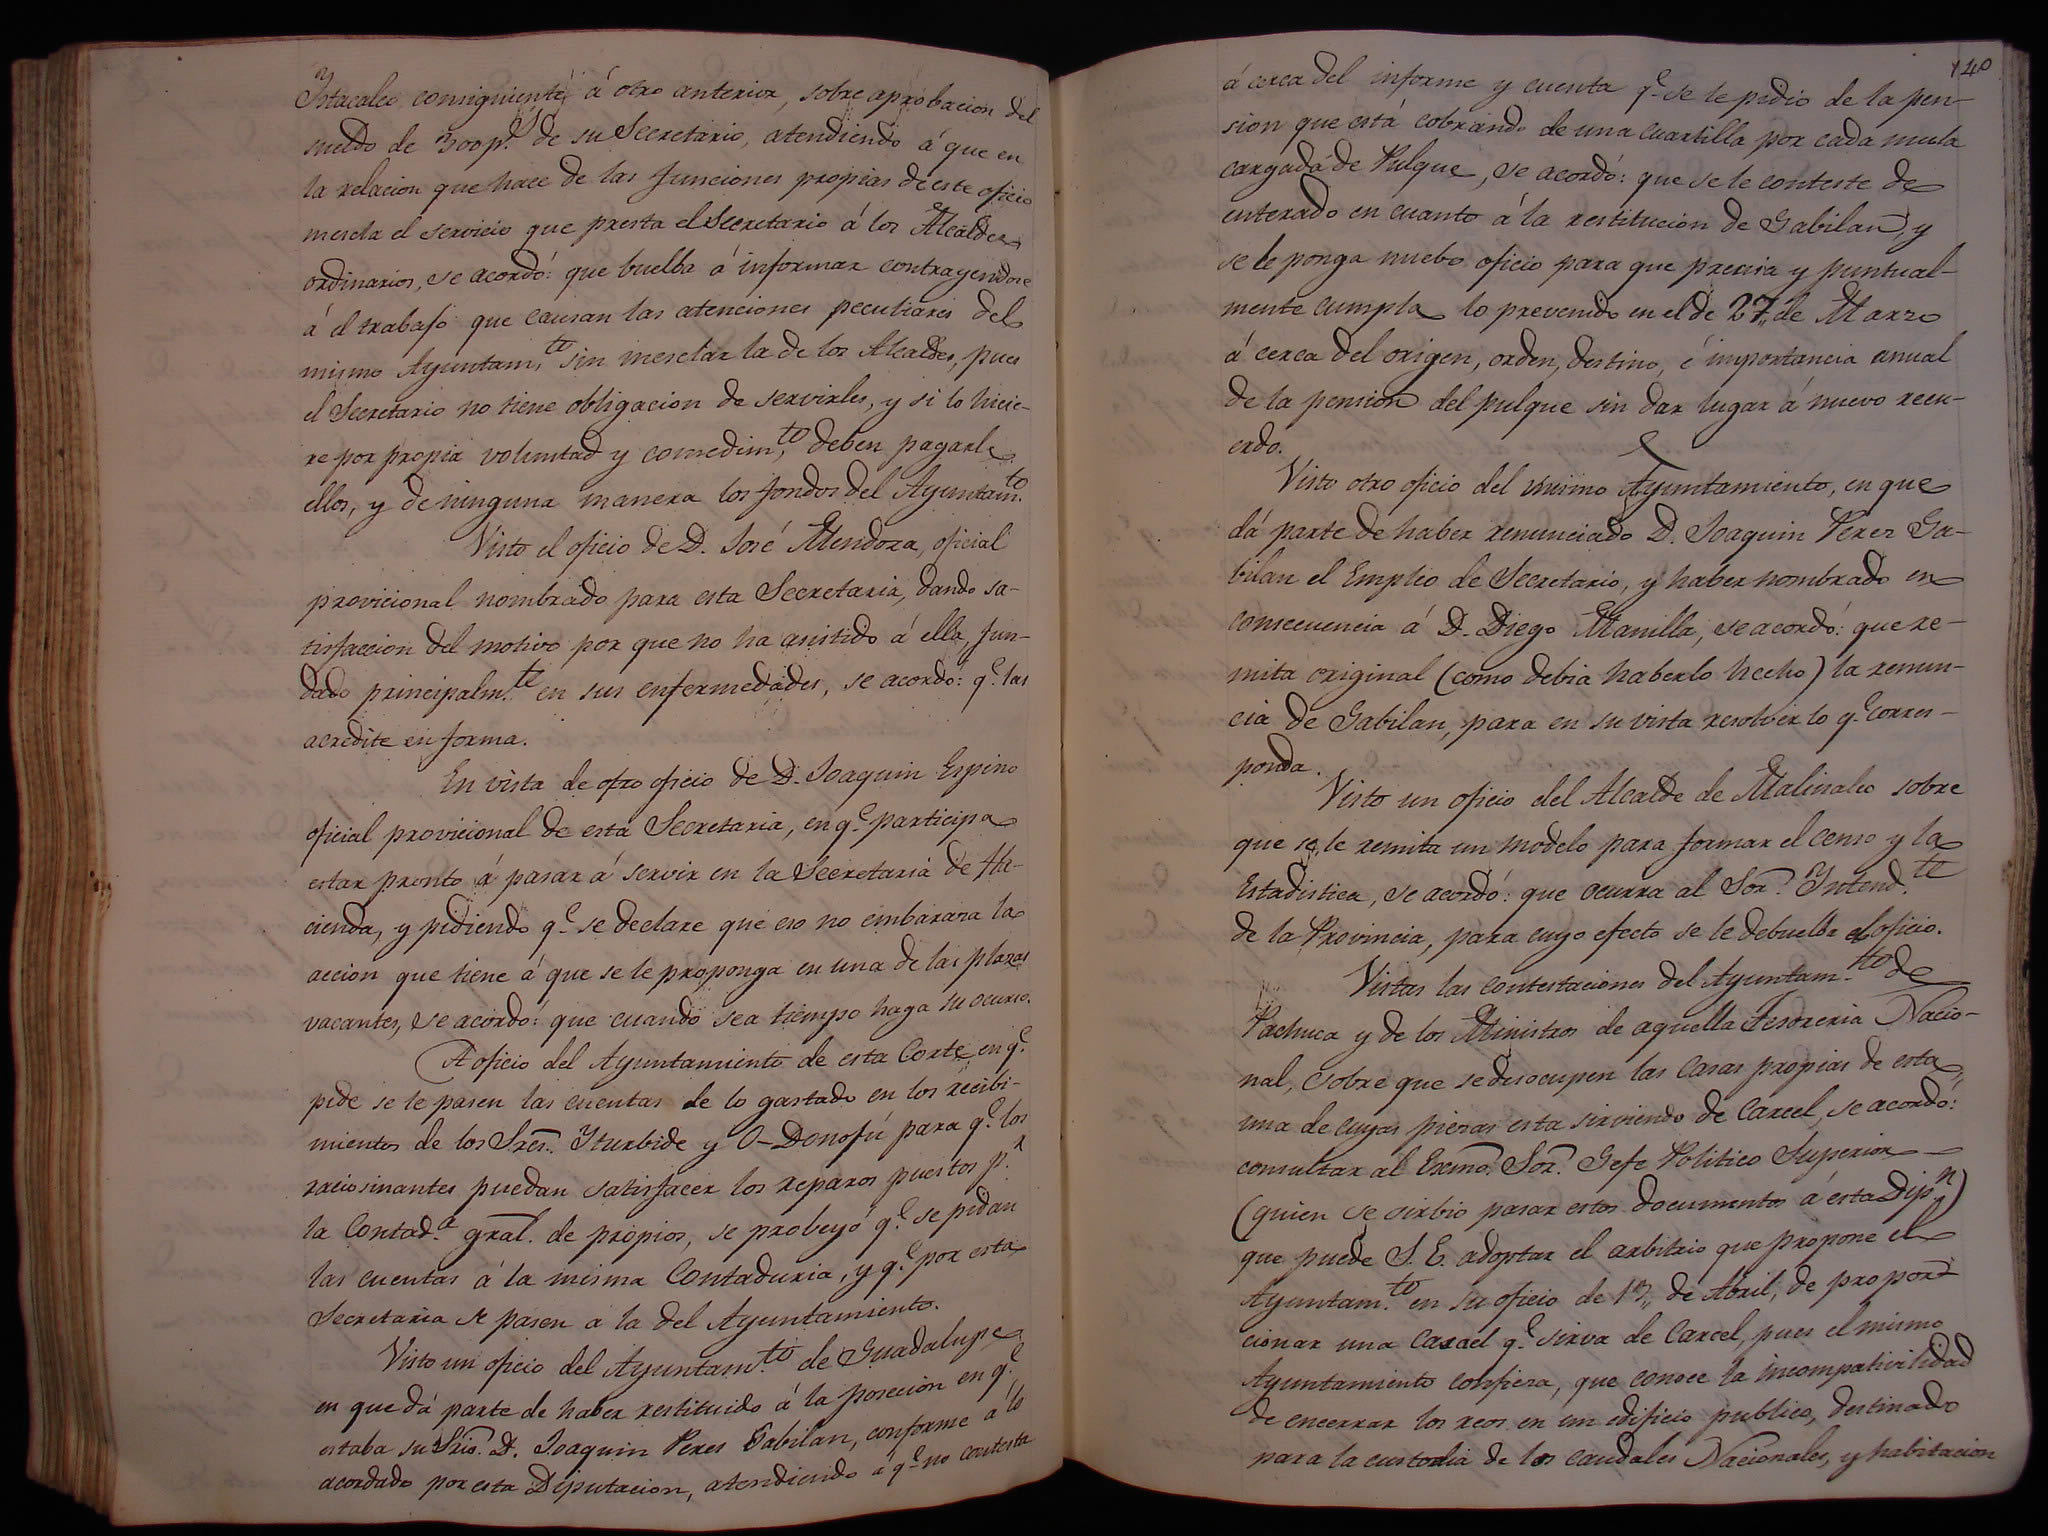 Istacalco consiguiente á otro anterior, sobre aprobacion del
sueldo de 300 p.s de su Secretario, atendiendo á que en
la relacion que hace de las funciones propias de este oficio
mescla el servicio que presta el Secretario á los Alcaldes
ordinarios, se acordó: que buelba á informar contrayendose
á el trabajo que causan las atenciones peculiares del
mismo Ayuntam.to sin mesclar la de los Alcaldes, pues
el Secretario no tiene obligacion de servirles, y si lo hicie-
re por propia voluntad y comedim.to deben pagarle
ellos, y de ninguna manera los fondos del Ayuntam.to
Visto el oficio de D. José Mendoza, oficial
provicional nombrado para esta Secretaria, dando sa-
tisfaccion del motivo por que no ha asistido á ella, fun-
dado principalm.te en sus enfermedades, se acordó: q.e las
acredite en forma.
En vista de otro oficio de D. Joaquin Espino
oficial provicional de esta Secretaria, en q.e participa
estar pronto á pasar á servir en la Secretaria de Ha-
cienda, y pidiendo q.e se declare que eso no embaraza la
accion que tiene á que se le proponga en una de las plazas
vacantes, se acordó: que cuando sea tiempo haga su ocurso.
A oficio del Ayuntamiento de esta Corte en q.e
pide se le pasen las cuentas de lo gastado en los recibi-
mientos de los Sres. Yturbide y O-Donofú para q.e los
raciosinantes puedan satisfacer los reparos puestos p.r
la Contad.a gral. de propios, se probeyó q.e se pidan
las cuentas á la misma Contaduria, y q.e por esta
Secretaria se pasen a la del Ayuntamiento.
Visto un oficio del Ayuntam.to de Guadalupe
en que dá parte de haber restituido á la posecion en q.e
estaba su Srio. D. Joaquin Peres Gabilan, conforme á lo
acordado por esta Diputacion, atendiendo á q.e no contesta
140
á cerca del informe y cuenta q.e se le pidio de la pen-
sion que está cobrando de una cuartilla por cada mula
cargada de Pulque, se acordó: que se le conteste de
enterado en cuanto á la restitucion de Gabilan, y
se le ponga nuebo oficio para que precisa y puntual-
mente cumpla lo prevenido en el de 27,, de Marzo
á cerca del origen, orden, destino, é importancia anual
de la pencion del pulque sin dar lugar á nuevo recu-
erdo.
Visto otro oficio del mismo Ayuntamiento, en que
dá parte de haber renunciado D. Joaquin Perez Ga-
bilan el Empleo de Secretario, y haber nombrado en
consecuencia á D. Diego Manilla, se acordó: que re-
mita original (como debia haberlo hecho) la renun-
cia de Gabilan, para en su vista resolver lo q.e corres-
ponda.
Visto un oficio del Alcalde de Malinalco sobre
que se le remita un modelo para formar el censo y la
Estadistica, se acordó: que ocurra al Sor. Yntend.te
de la Provincia, para cuyo efecto se le debuelba el oficio.
Vistas las contestaciones del Ayuntam.to de
Pachuca y de los Ministros de aquella Tesoreria Nacio-
nal, sobre que se desocupen las Casas propias de esta,
una de cuyas piezas esta sirviendo de Carcel, se acordó:
consultar al Exmo. Sor. Gefe Politico Superior
(quien se sirbio pasar estos documentos á esta Dip.n)
que puede S. E. adoptar el arbitrio que propone el
Ayuntam.to en su oficio de 13,, de Abril, de propor-
cionar una Casael q.e sirva de Carcel, pues el mismo
Ayuntamiento confiesa, que conoce la incompativilidad
de encerrar los reos en un edificio publico, destinado
para la custodia de los caudales Nacionales, y habitacion